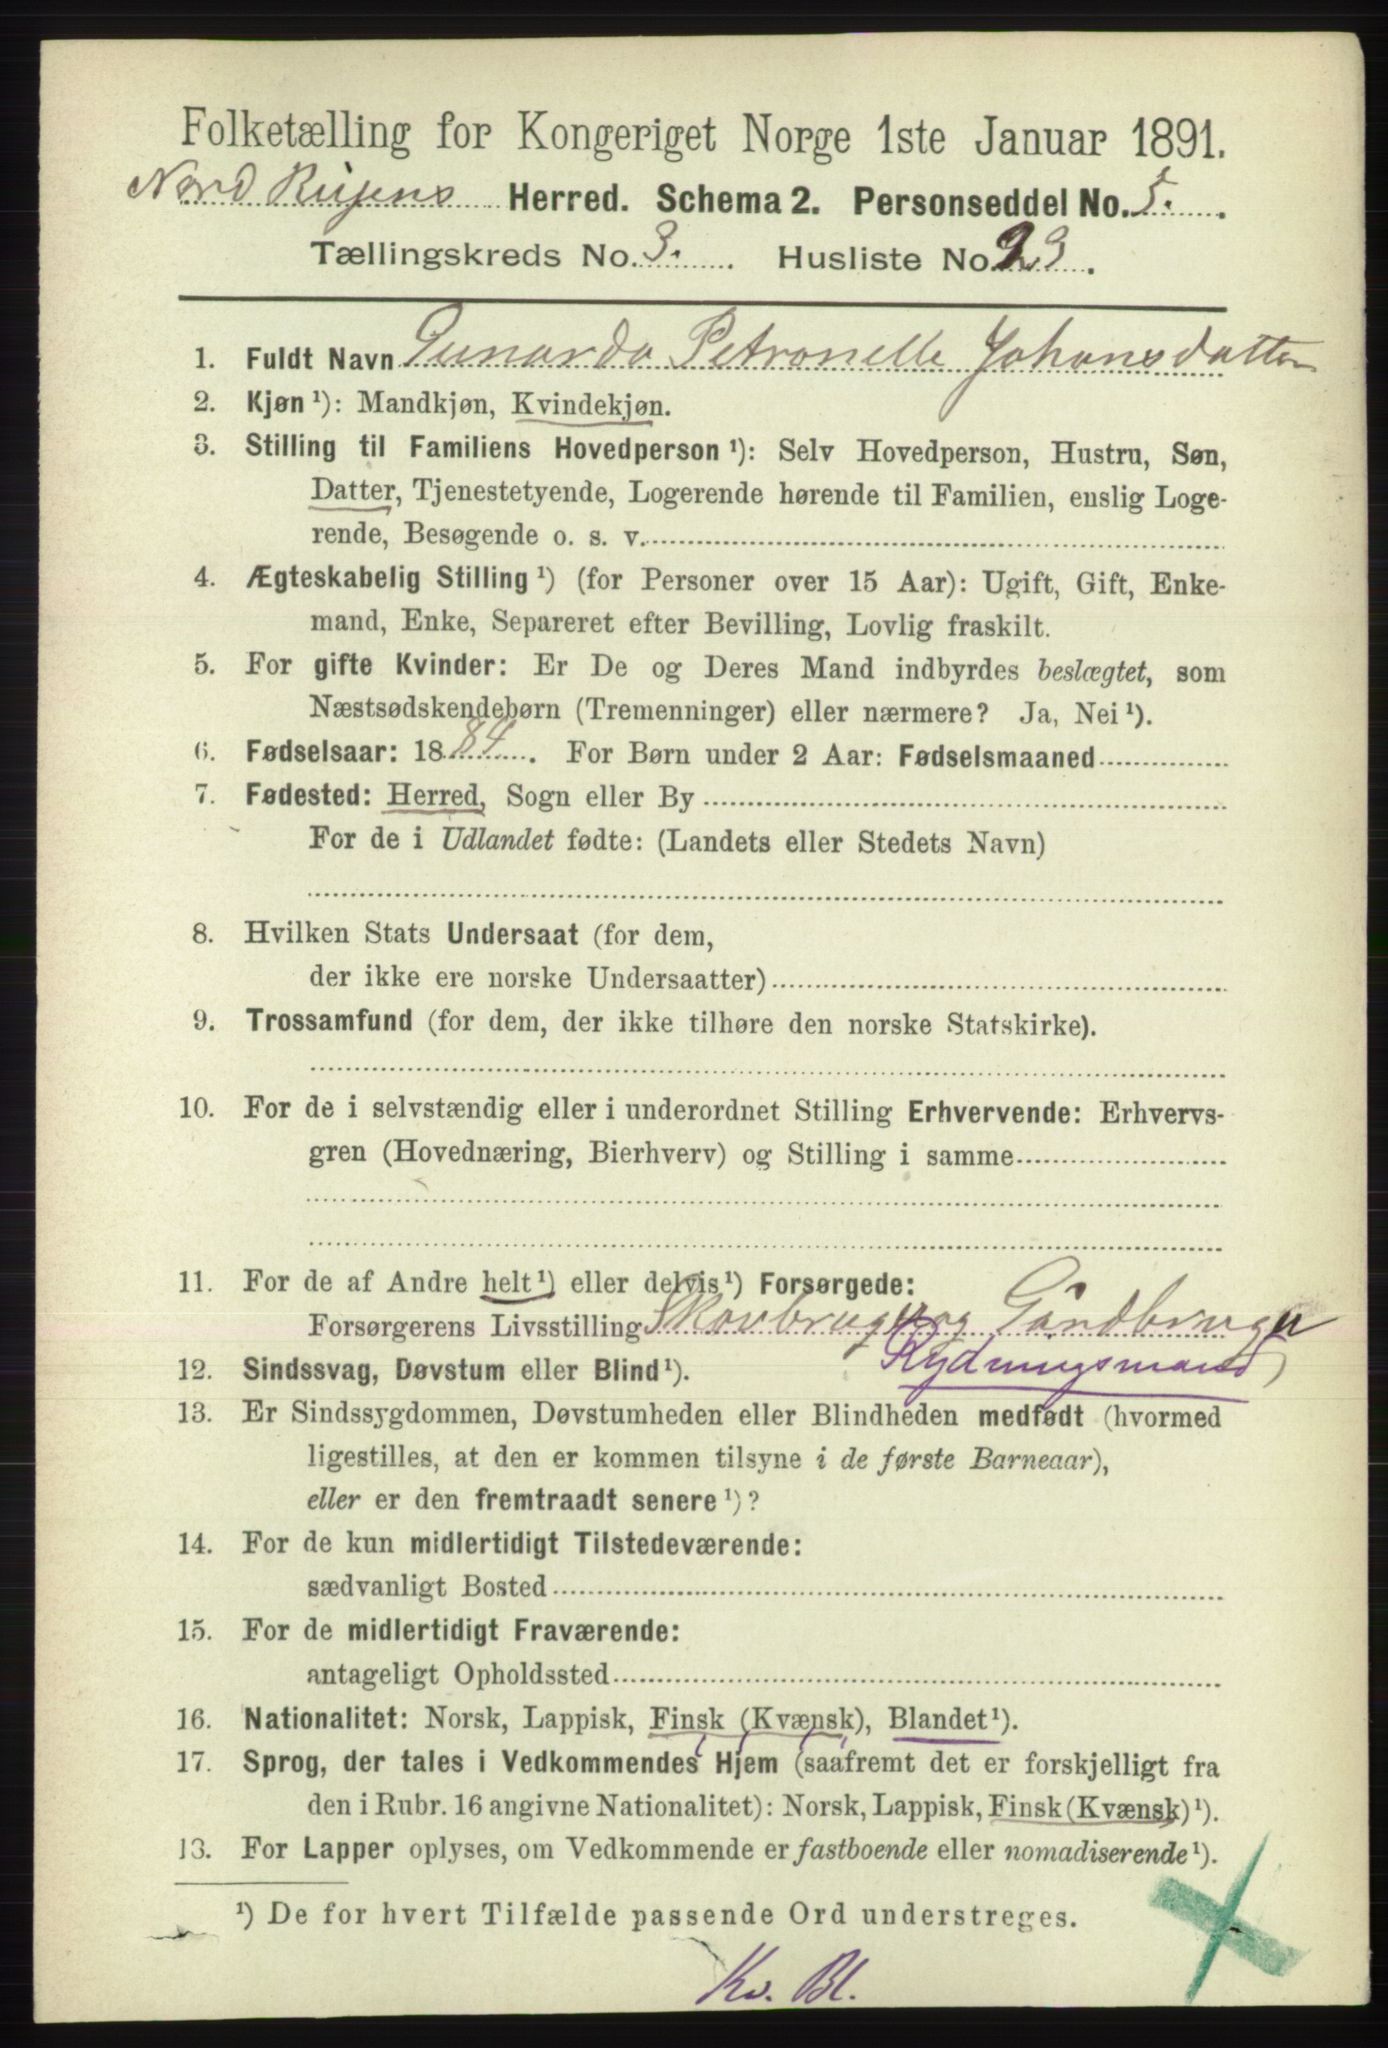 Folketælling for Kongeriget Norge 1ste Januar 1891.
Nord Rejsens Herred. Schema 2. Personseddel No. 5.
Tællingskreds No. 3. Husliste No. 23.
1. Fuldt Navn Gunarda Petronelle Johansdatter
2. Kjøn ¹): Mandkjøn, Kvindekjøn.
3. Stilling til Familiens Hovedperson ¹): Selv Hovedperson, Hustru, Søn,
Datter, Tjenestetyende, Logerende hørende til Familien, enslig Loge-
rende, Besøgende o. s. v.
4. Ægteskabelig Stilling ¹) (for Personer over 15 Aar): Ugift, Gift, Enke-
mand, Enke, Separeret efter Bevilling, Lovlig fraskilt.
5. For gifte Kvinder: Er De og Deres Mand indbyrdes beslægtet, som
Næstsødskendebørn (Tremenninger) eller nærmere? Ja, Nei ¹).
6. Fødselsaar: 1884. For Børn under 2 Aar: Fødselsmaaned
7. Fødested: Herred, Sogn eller By
For de i Udlandet fødte: (Landets eller Stedets Navn)
8. Hvilken Stats Undersaat (for dem,
der ikke ere norske Undersaatter)
9. Trossamfund (for dem, der ikke tilhøre den norske Statskirke).
10. For de i selvstændig eller i underordnet Stilling Erhvervende: Erhvervs-
gren (Hovednæring, Bierhverv) og Stilling i samme
11. For de af Andre helt ¹) eller delvis ¹) Forsørgede:
Forsørgerens Livsstilling Skovbrug og Gårdbruger
Rydningsmand)
12. Sindssvag, Døvstum eller Blind ¹).
13. Er Sindssygdommen, Døvstumheden eller Blindheden medfødt (hvormed
ligestilles, at den er kommen tilsyne i de første Barneaar),
eller er den fremtraadt senere ¹)?
14. For de kun midlertidigt Tilstedeværende:
sædvanligt Bosted
15. For de midlertidigt Fraværende:
antageligt Opholdssted
16. Nationalitet: Norsk, Lappisk, Finsk (Kvænsk), Blandet ¹).
17. Sprog, der tales i Vedkommendes Hjem (saafremt det er forskjelligt fra
den i Rubr. 16 angivne Nationalitet): Norsk, Lappisk, Finsk (Kvænsk) ¹).
13. For Lapper oplyses, om Vedkommende er fastboende eller nomadiserende ¹).
¹) De for hvert Tilfælde passende Ord understreges.
Kv. Bl.